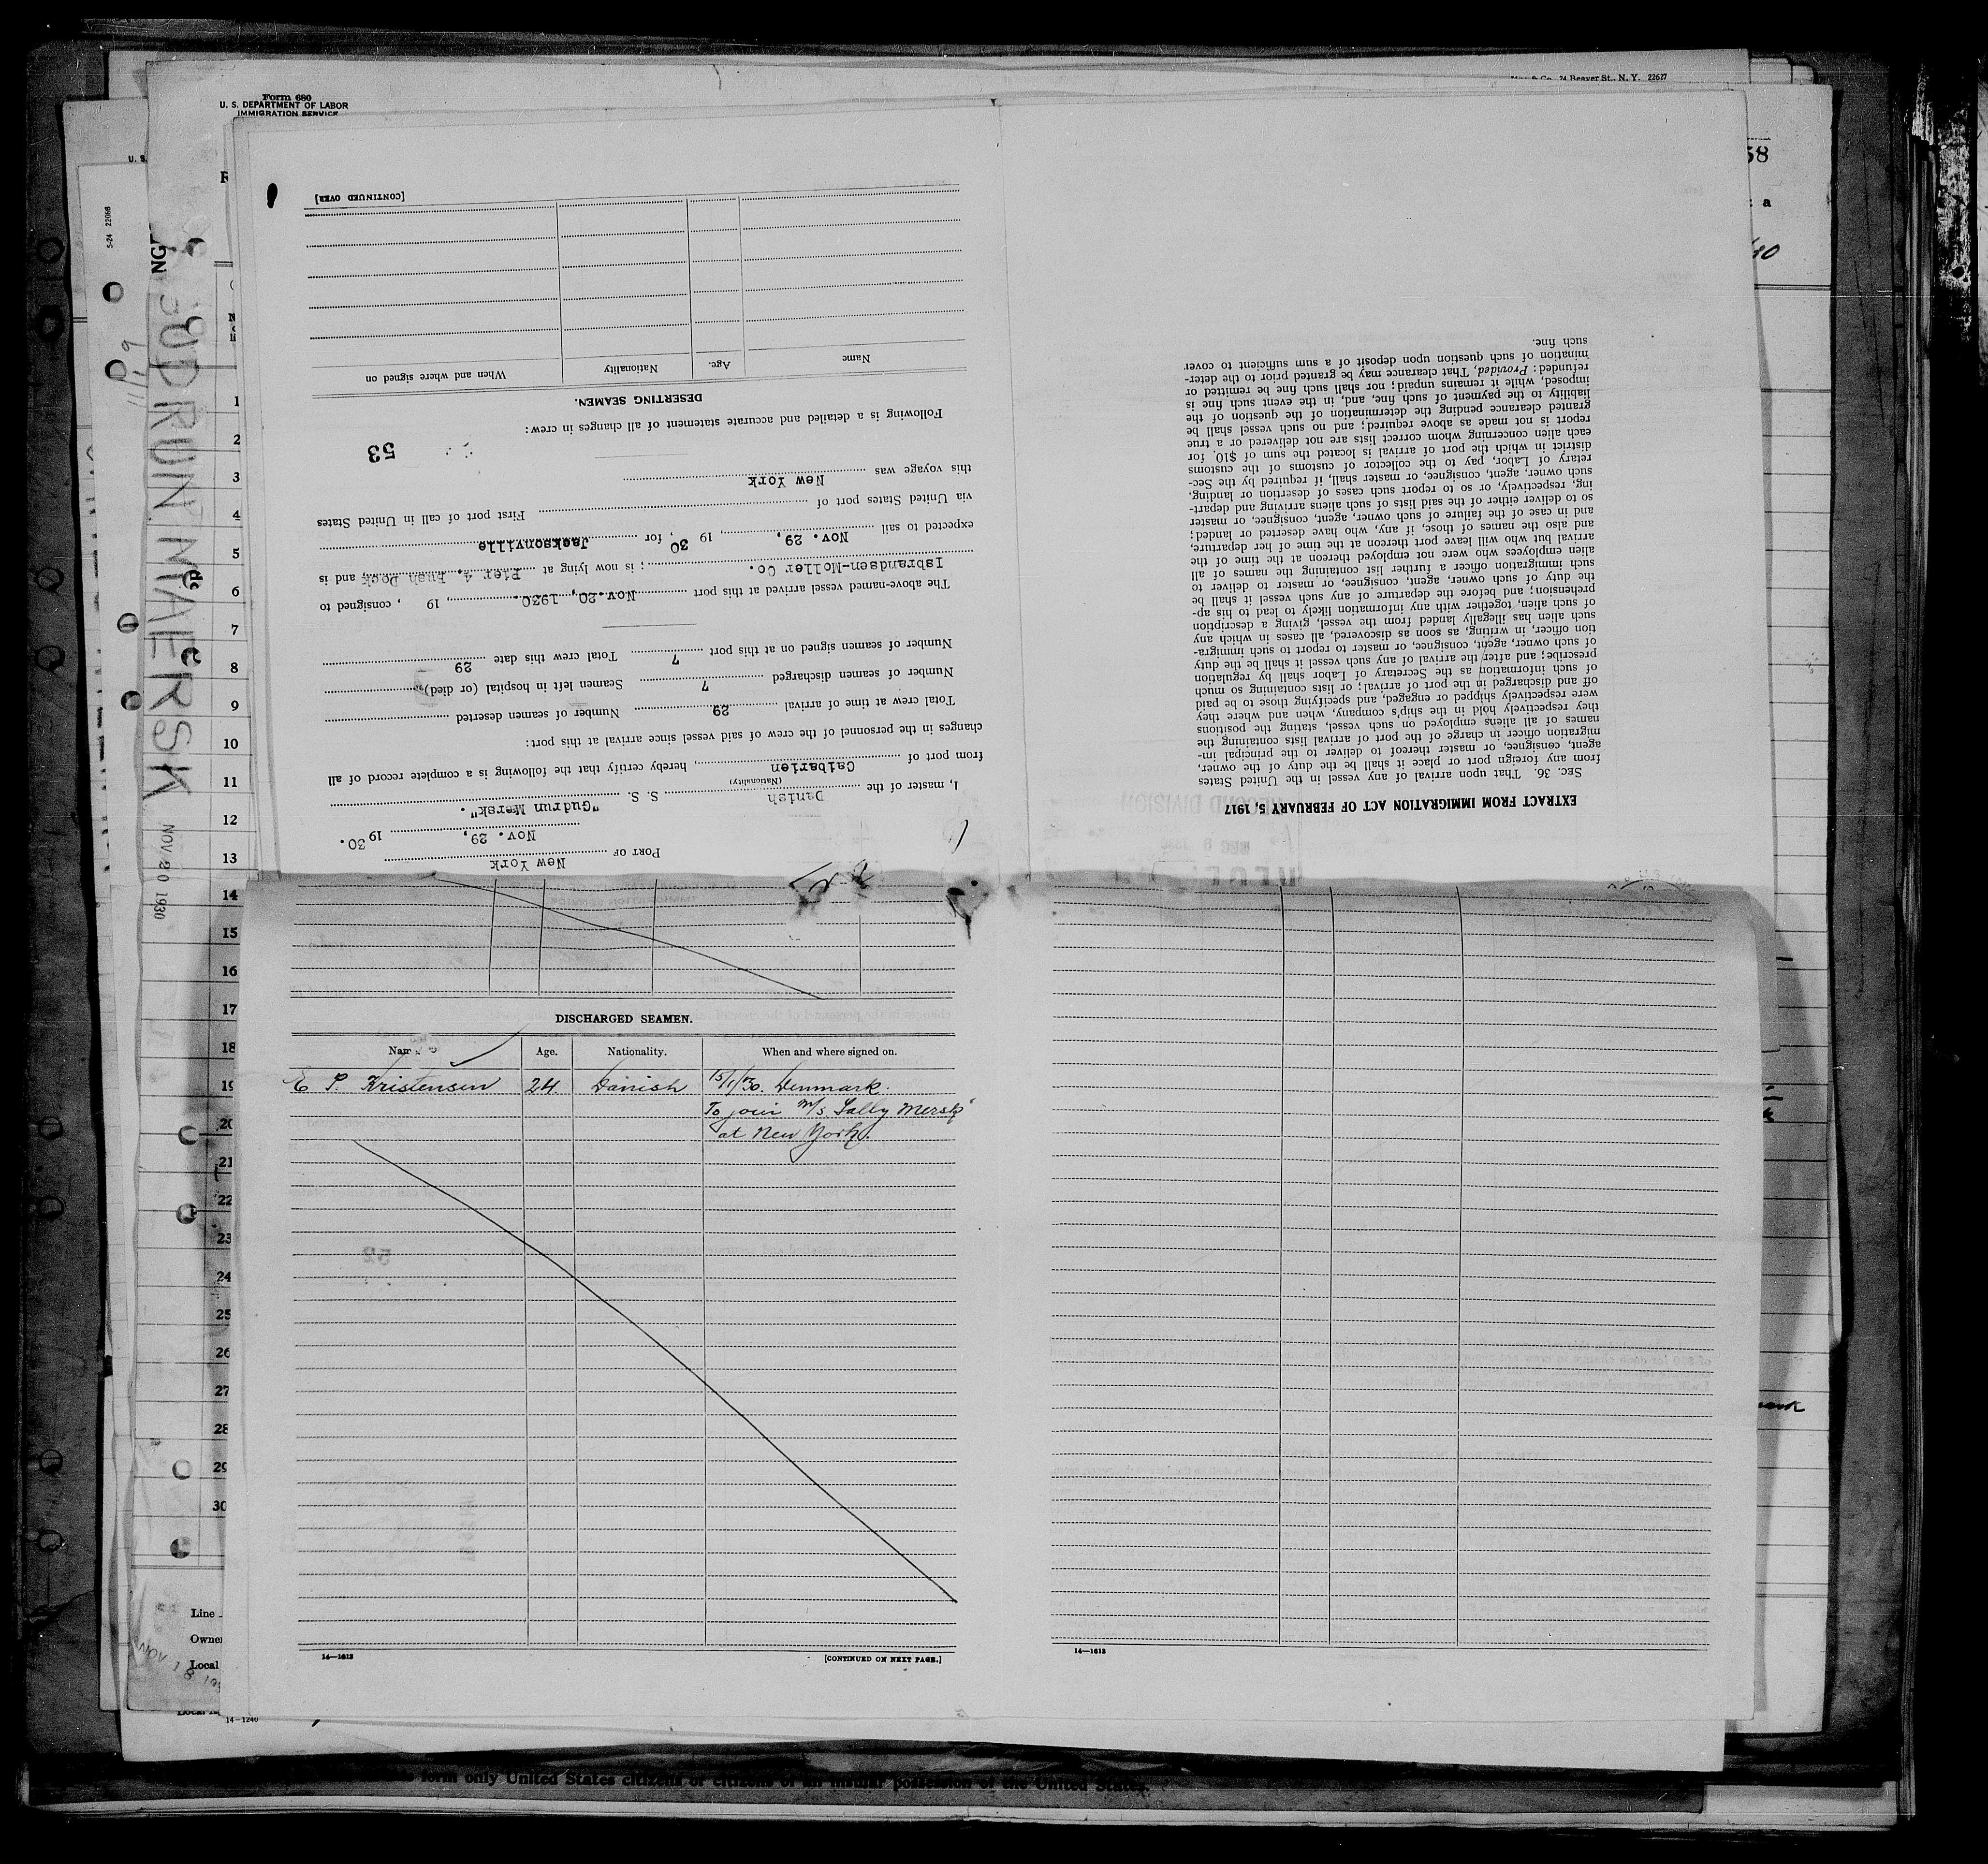 Form 680
U. S. DEPARTMENT OF LABOR
IMMIGRATION SERVICE
24 Beaver St., N. Y. 22627
5-24 22068
GUDRUN MAERSK
NOV 20 1930
PORT OF New York
Nov. 29, 1930.
I, master of the Danish S. S. "Gudrun Mersk".
(Nationality)
from port of Caibarien, hereby certify that the following is a complete record of all
changes in the personnel of the crew of said vessel since arrival at this port:
Total crew at time of arrival 29 Number of seamen deserted
Number of seamen discharged 7 Seamen left in hospital (or died)
Number of seamen signed on at this port 7 Total crew this date 29
The above-named vessel arrived at this port Nov. 20, 1930., 19 , consigned to
Isbrandsen-Moller Co. ; is now lying at Pier 4, Bush Dock, and is
expected to sail Nov. 29, , 19 30, for Jacksonville
via United States port of First port of call in United States
this voyage was New York
53
Following is a detailed and accurate statement of all changes in crew:
DESERTING SEAMEN.
Name Age. Nationality When and where signed on
[CONTINUED OVER]
EXTRACT FROM IMMIGRATION ACT OF FEBRUARY 5, 1917
SEC. 36. That upon arrival of any vessel in the United States
from any foreign port or place it shall be the duty of the owner,
agent, consignee, or master thereof to deliver to the principal im-
migration officer in charge of the port of arrival lists containing the
names of all aliens employed on such vessel, stating the positions
they respectively hold in the ship's company, when and where they
were respectively shipped or engaged, and specifying those to be paid
off and discharged in the port of arrival; or lists containing so much
of such information as the Secretary of Labor shall by regulation
prescribe; and after the arrival of any such vessel it shall be the duty
of such owner, agent, consignee, or master to report to such immigra-
tion officer, in writing, as soon as discovered, all cases in which any
such alien has illegally landed from the vessel, giving a description
of such alien, together with any information likely to lead to his ap-
prehension; and before the departure of any such vessel it shall be
the duty of such owner, agent, consignee, or master to deliver to
such immigration officer a further list containing the names of all
alien employees who were not employed thereon at the time of the
arrival but who will leave port thereon at the time of her departure,
and also the names of those, if any, who have deserted or landed;
and in case of the failure of such owner, agent, consignee, or master
so to deliver either of the said lists of such aliens arriving and depart-
ing, respectively, or so to report such cases of desertion or landing,
such owner, agent, consignee, or master shall, if required by the Sec-
retary of Labor, pay to the collector of customs of the customs
district in which the port of arrival is located the sum of $10. for
each alien concerning whom correct lists are not delivered or a true
report is not made as above required; and no such vessel shall be
granted clearance pending the determination of the question of the
liability to the payment of such fine, and, in the event such fine is
imposed, while it remains unpaid; nor shall such fine be remitted or
refunded: Provided, That clearance may be granted prior to the deter-
mination of such question upon deposit of a sum sufficient to cover
such fine.
1
2
3
4
5
6
7
8
9
10
11
12
13
14
15
16
17
18
19
20
21
22
23
24
25
26
27
28
29
30
DISCHARGED SEAMEN.
Age. Nationality. When and where signed on.
E P. Kristensen 24. Danish 15/1/30. Denmark.
To join M/S. Sally Mersk
at New York.
14—1613 [CONTINUED ON NEXT PAGE.]
14—1613
Line
Local
14-1240
form only United States citizens or citizens of an insular possession of the United States.